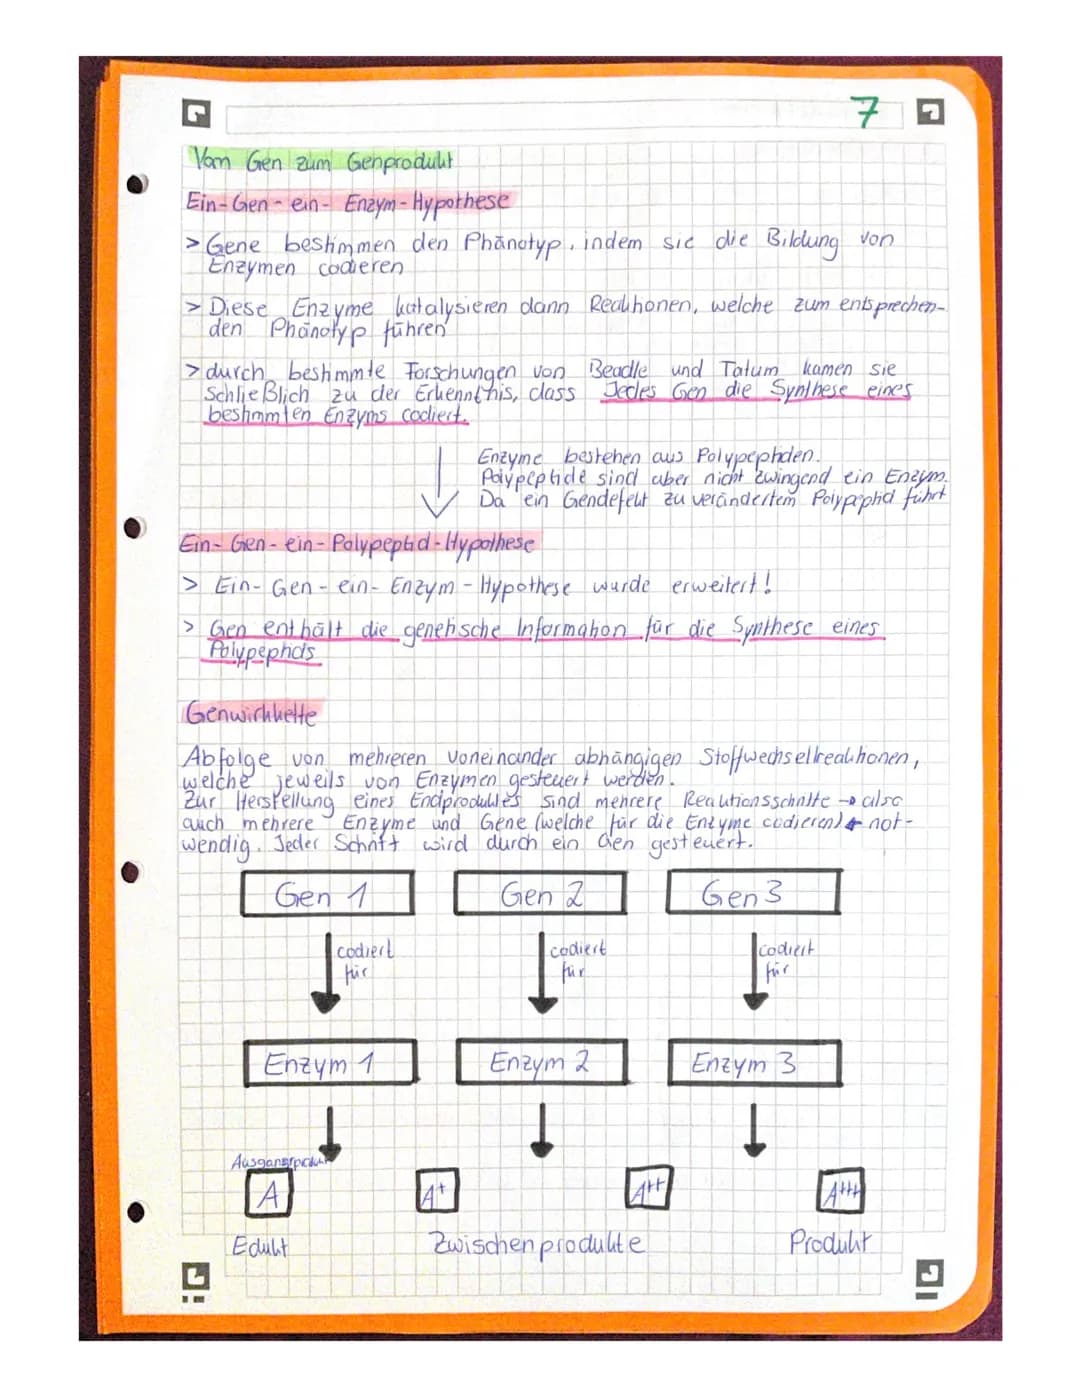 7
Vom Gen zum Genprodukt
Ein-Gen-ein-Enzym-Hypothese
> Gene bestimmen den Phänotyp, indem sie die Bildung von
Enzymen codieren
> Diese Enzyme katalysieren dann Reaktionen, welche zum entsprechen-
den Phänotyp führen
> durch bestimmte Forschungen von Beadle und Tatum kamen sie
Schließlich zu der Erkenntnis, dass Jedes Gen die Synthese eines
bestimmten Enzyms codiert.
Enzyme bestehen aus Polypeptiden.
Polypeptide sind aber nicht zwingend ein Enzym.
Da ein Gendefekt zu verändertem Polypeptid führt
Ein-Gen-ein-Polypeptid-Hypothese
> Ein-Gen-ein-Enzym-Hypothese wurde erweitert!
> Gen enthält die genetische Information für die Synthese eines
Polypeptids
Genwirkkette
Abfolge von mehreren voneinander abhängigen Stoffwechselreaktionen,
welche jeweils von Enzymen gesteuert werden.
Zur Herstellung eines Endproduktes sind mehrere Reaktionsschritte → also
auch mehrere Enzyme und Gene (welche für die Enzyme codieren) not-
wendig. Jeder Schritt wird durch ein Gen gesteuert.
Gen 1 Gen 2 Gen 3
codiert codiert codiert
für für für
Enzym 1 Enzym 2 Enzym 3
Ausgangsprodukt
A A+ A++ A+++
Edukt Zwischenprodukte Produkt